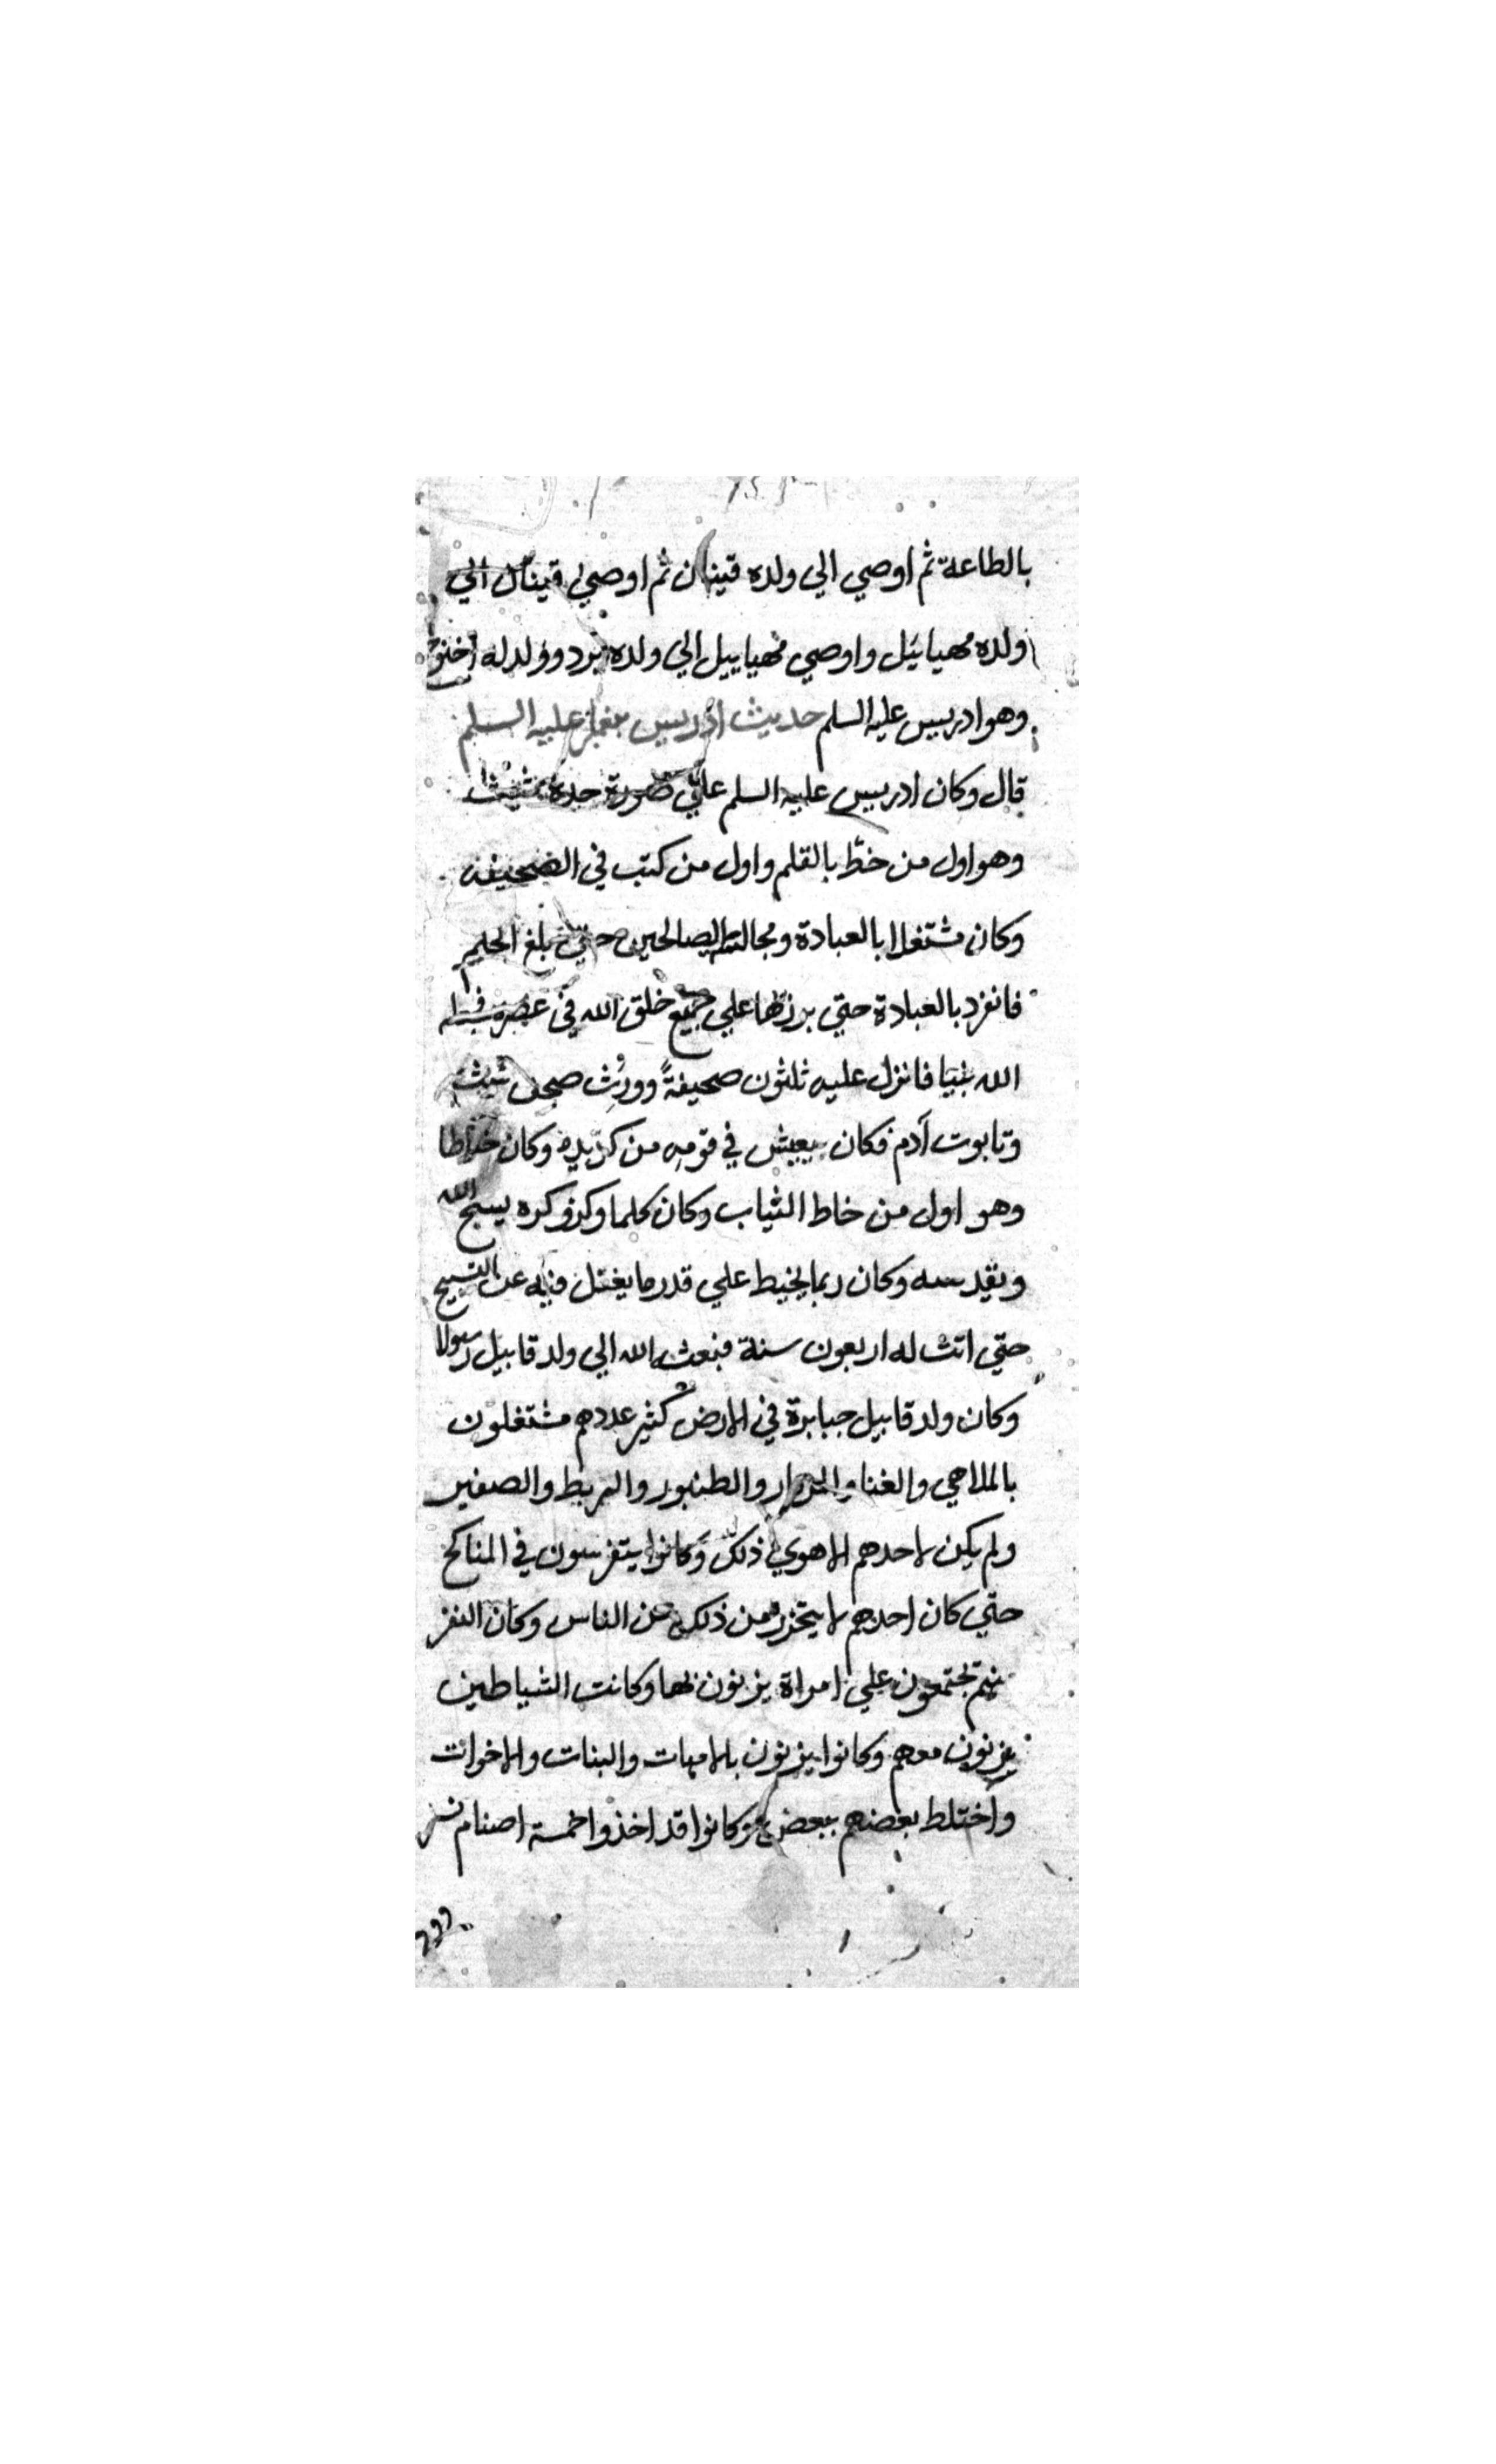 بالطاعة ثم اوصي الي ولده قينان ثم اوصي قينان الي
ولده مهيائيل واوصي مهياييل الي ولده يرد وولد له اخنوخ
وهو ادريس عليه السلم حديث ادريس عليه السلم
قال وكان ادريس عليه السلم علي صورة جده شيث
وهو اول من خطّ بالقلم واول من كتب في الصحيفه
وكان مشتغلا بالعبادة ومجالسة الصالحين حتي بلغ الحلم
فانفرد بالعبادة حتي برز علي جميع خلق الله في عصره
الله نبيا فانزل عليه ثلثون صحيفةً وورث صحف شيث
وتابوت آدم فكان يعيش في قومه من كد يده وكان خياطا
وهو اول من خاط الثياب وكان كلما وكز وكزه يسبح الله
ويقدسه وكان ربما يخيط علي قدر ما يغفل فيه عن التسبيح
حتي اتت له اربعون سنة فبعثه الله الي ولد قابيل رسولا
وكان ولد قابيل جبابرة في الارض كثير عددهم مشتغلون
بالملاهي والغنا والمزمار والطنبور والبربط والصفير
ولم يكن لاحدهم الا هوي ذلك وكانوا يتفرسون في المناكح
حتي كان احدهم لا يتحرز من ذلك عن الناس وكان النفر
منهم يجتمعون علي امراة يزنون بها وكانت الشياطين
يزنون معهم وكانوا يزنون بالامهات والبنات والاخوات
واختلط بعضهم ببعض وكانوا قد اخذوا خمسة اصنام نسر